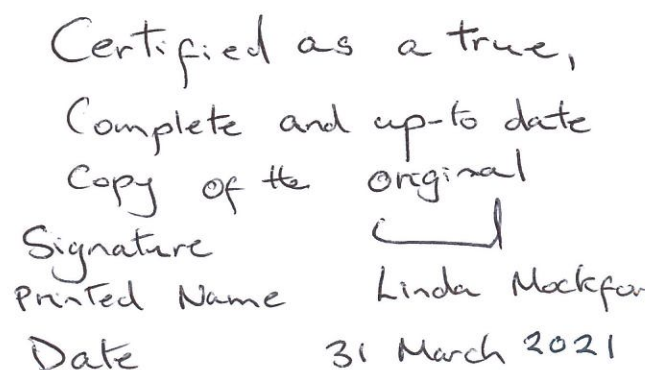 Certified as a true,
Complete and up-to date
Copy of the original
Signature
Printed Name Linda Mockfor
Date 31 March 2021